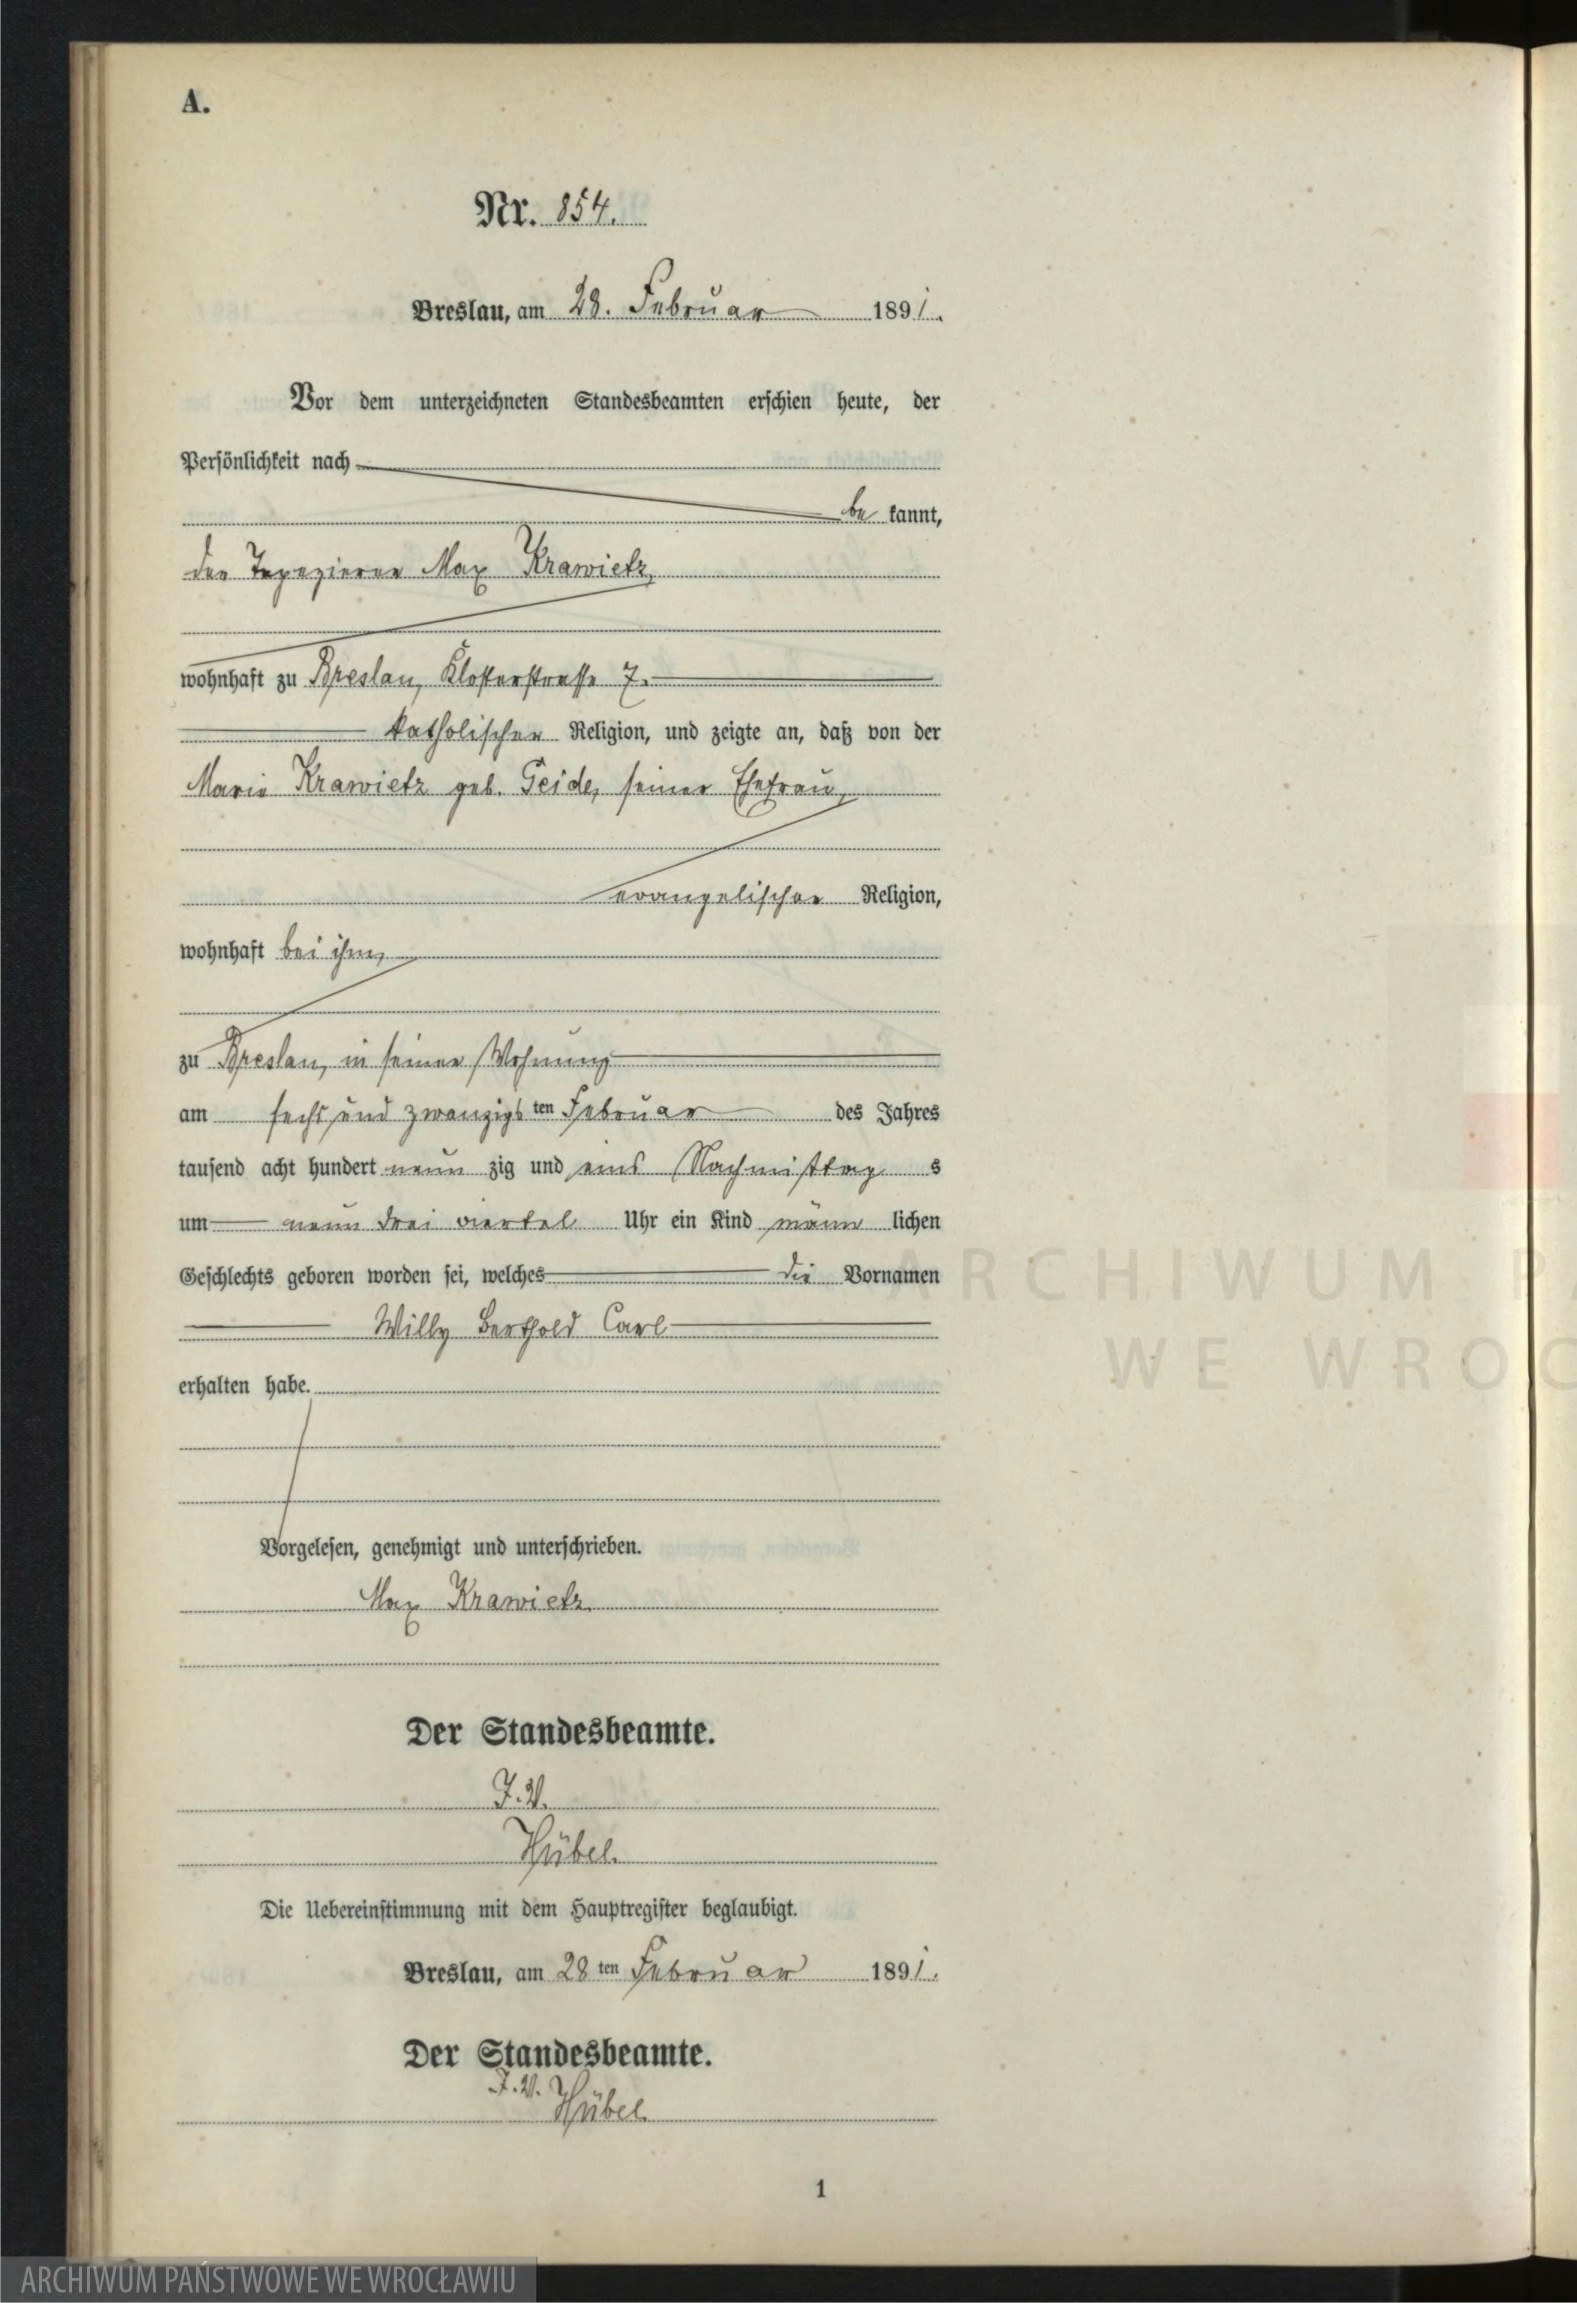 A.
Nr. 854.
Breslau, am 28. Februar 1891.
Vor dem unterzeichneten Standesbeamten erschien heute, der
Persönlichkeit nach
be kannt,
der Tapezierer Max Krawietz,
wohnhaft zu Breslau, Klosterstrasse 7.
katholischer Religion, und zeigte an, daß von der
Marie Krawietz geb. Geide, seiner Ehefrau,
evangelischer Religion,
wohnhaft bei ihm,
zu Breslau, in seiner Wohnung
am sechs und zwanzigs ten Februar des Jahres
tausend acht hundert neun zig und eins Nachmittag s
um neun drei viertel Uhr ein Kind männ lichen
Geschlechts geboren worden sei, welches die Vornamen
Willy Berthold Carl
erhalten habe.
Vorgelesen, genehmigt und unterschrieben.
Max Krawietz
Der Standesbeamte.
J. V.
Hübel.
Die Uebereinstimmung mit dem Hauptregister beglaubigt.
Breslau, am 28 ten Februar 1891.
Der Standesbeamte.
J. V. Hübel.
1
ARCHIWUM PA
WE WROC
ARCHIWUM PAŃSTWOWE WE WROCŁAWIU